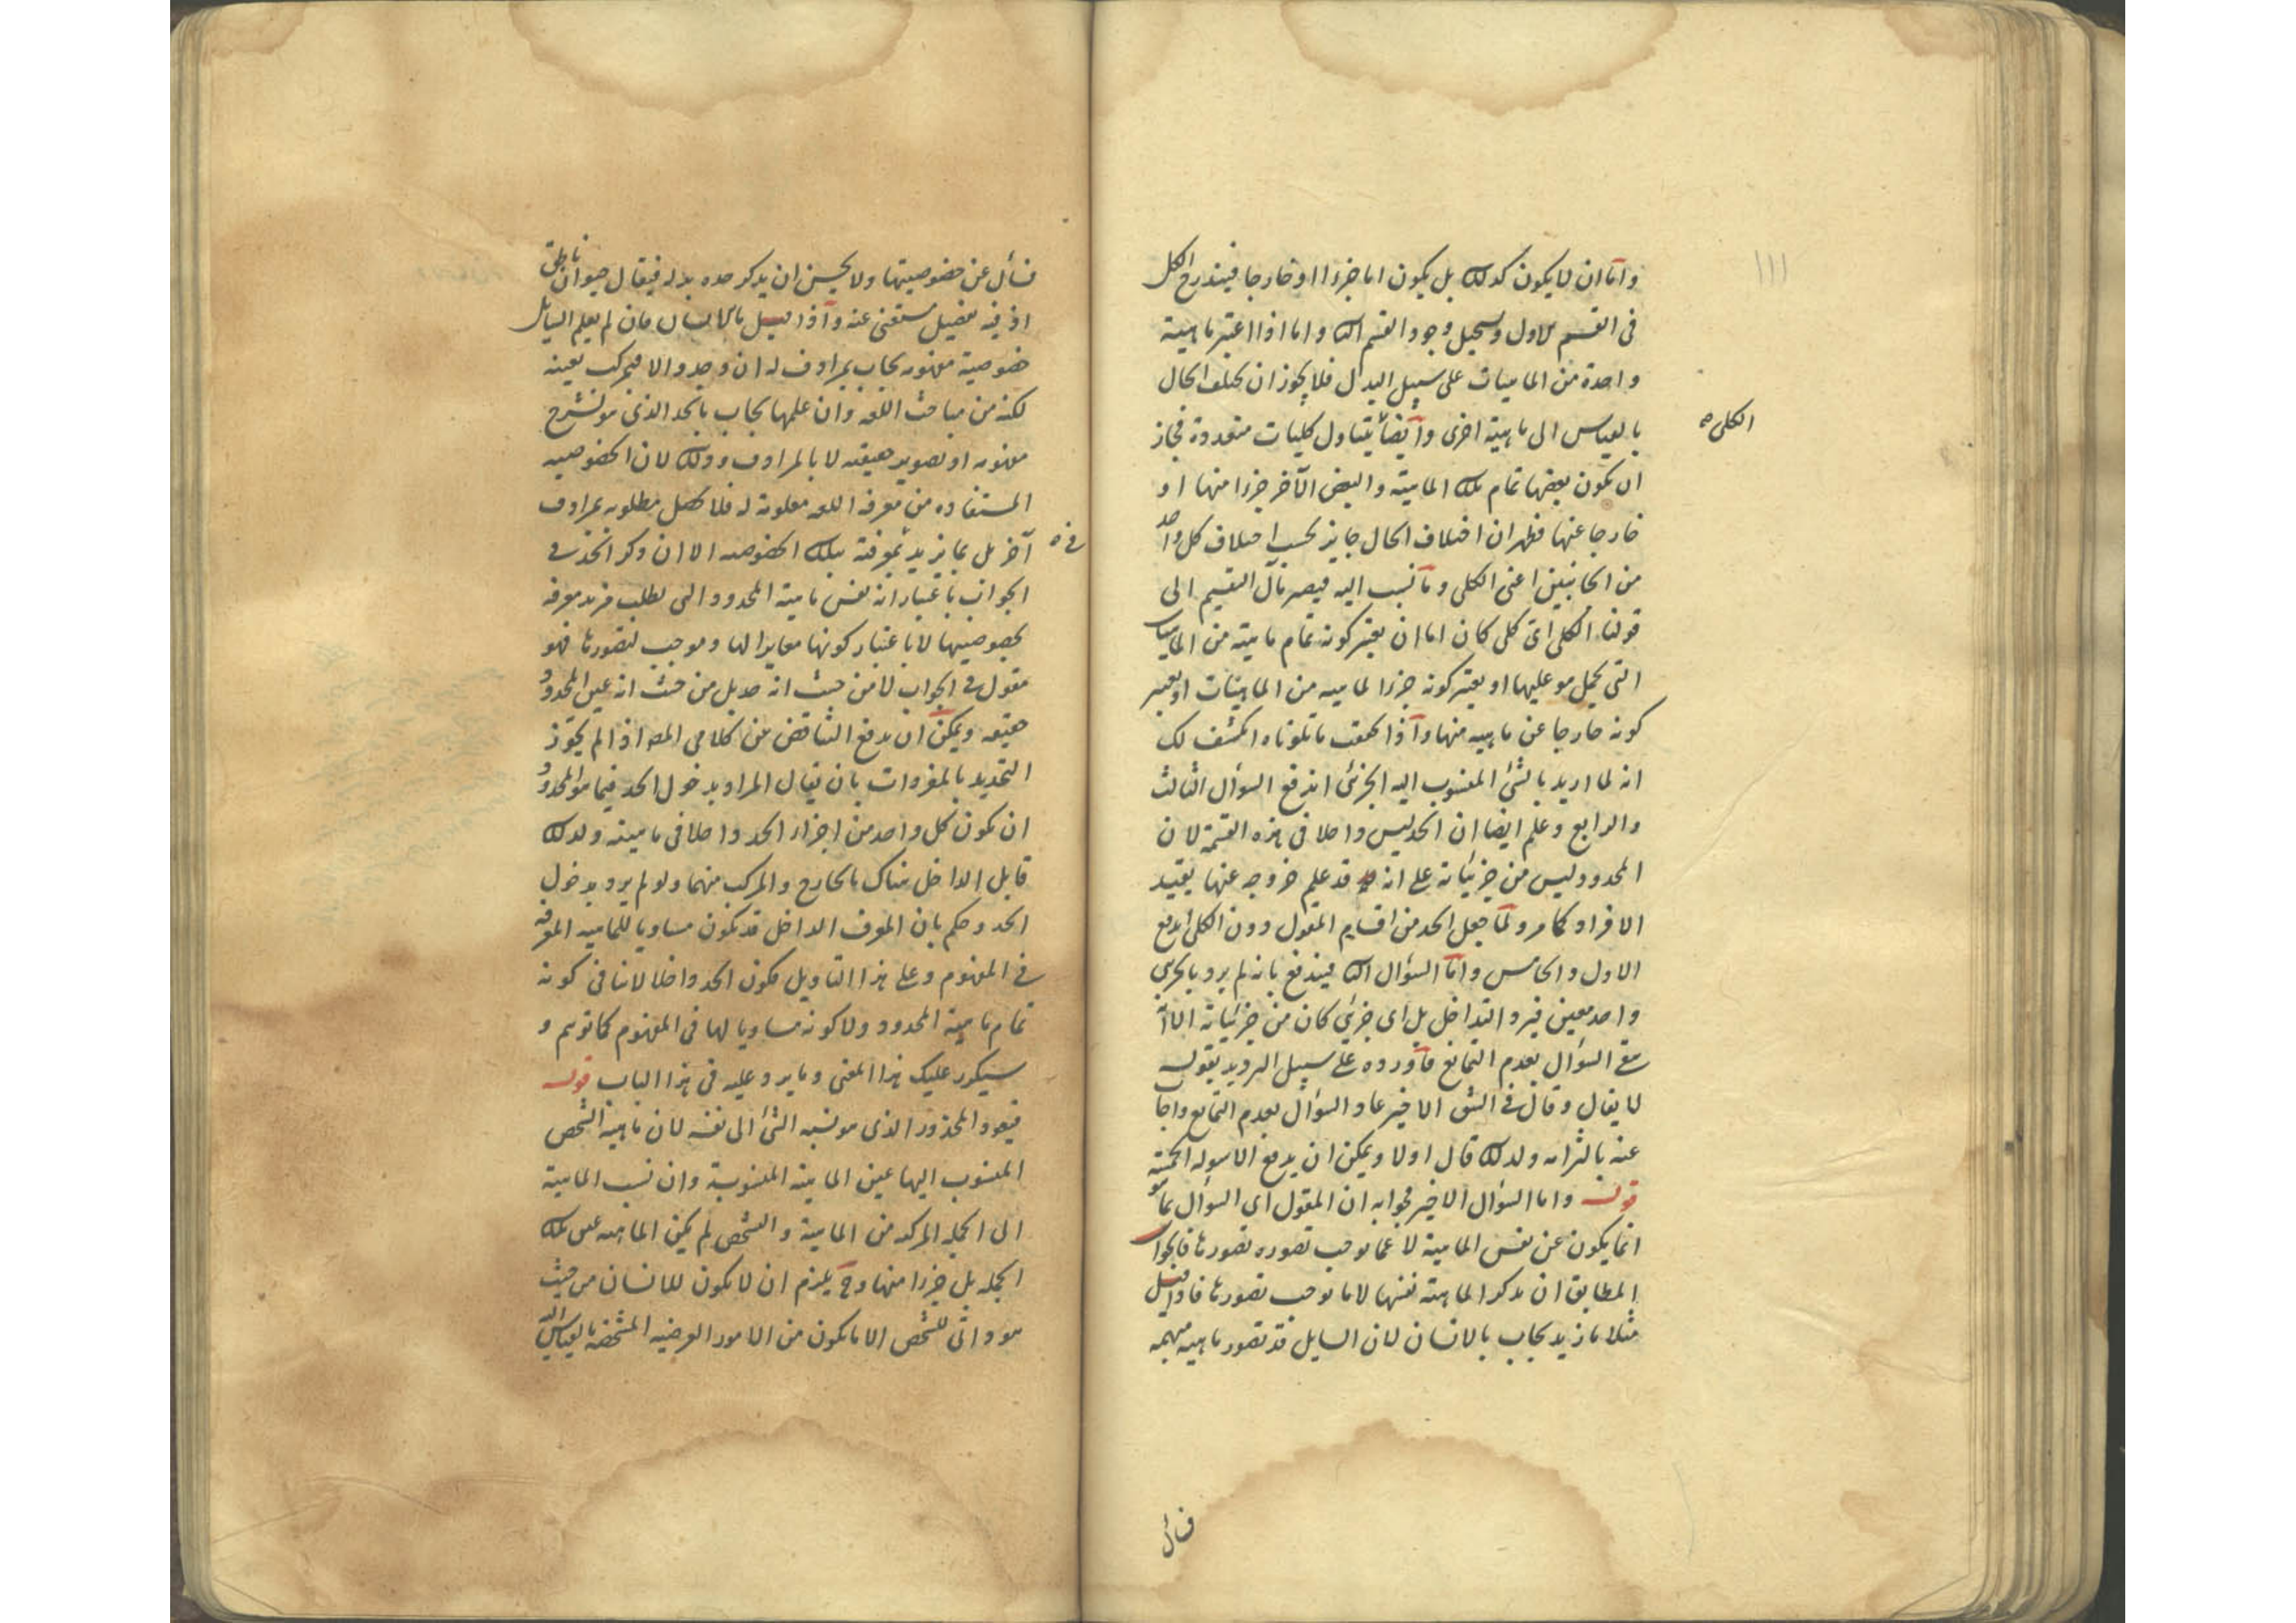 ١١١
واما ان لا يكون كذلك بل يكون اما جزءا او خارجا فيندرج الكل
فى القسم الاول ويستحيل وجود القسم الثا واما اذا اعتبر ماهية
واحدة من الماهيات على سبيل البدل فلا يجوز ان يختلف الحال
الكلى
بالقياس الى ماهية اخرى وايضا يتناول كليات متعددة فجاز
ان يكون بعضها تمام تلك الماهية والبعض الآخر جزءا منها او
خارجا عنها فظهر ان اختلاف الحال جايز بحسب اختلاف كل واحد
من الجانبين اعنى الكلى وما نسب اليه فيصير مآل التقسيم الى
قولنا الكلى اى كلى كان اما ان يعتبر كونه تمام ماهية من الماهيات
التى يحمل هو عليها او يعتبر كونه جزءا لماهيه من الماهيات او يعتبر
كونه خارجا عن ماهيه منها واذا تحققت ما تلوناه انكشف لك
انه لما اريد بالشئ المنسوب اليه الجزئى اندفع السؤال الثالث
والرابع وعلم ايضا ان الحد ليس داخلا فى هذه القسمة لان
المحدود ليس من جزئياته على انه قد علم خروجه عنها بقيد
الافراد كما مر ولما جعل الحد من اقسام المقول دون الكلى اندفع
الاول والخامس واما السؤال الثا فيندفع بانه لم يرد بالجزئى
واحد معين فيرد التداخل بل اى جزئى كان من جزئياته الا انه
مع السؤال بعدم التمانع فاورده على سبيل الترديد بقوله
لا يقال وقال فى الشق الاخير عاد السؤال بعدم التمانع واجاب
عنه بالتزامه ولذلك قال اولا ويمكن ان يدفع الاسوله الخمسة
قوله واما السؤال الاخير فجوابه ان المقول اى السؤال بما هو
انما يكون عن نفس الماهية لا عما يوجب تصوره تصورها فالجواب
المطابق ان يذكر الماهية نفسها لا ما يوجب تصورها فاذا قيل
مثلا ما زيد يجاب بالانسان لان السايل قد تصور ماهيه مبهمه
فسأل
فسأل عن خصوصيتها ولا يحسن ان يذكر حده بدله فيقال حيوان ناطق
اذ فيه تفصيل مستغنى عنه واذا قيل ما الانسان فان لم يعلم السايل
خصوصية مفهومه يجاب بمرادف له ان وجد والا فبمركب يعينه
لكنه من مباحث اللغه وان علمها يجاب بالحد الذى هو لشرح
مفهومه او تصوير حقيقته لا بالمرادف وذلك لان الخصوصيه
المستفاده من معرفة اللغه معلومة له فلا يحصل مطلوبه بمرادف
آخر بل بما يزيد معرفته بتلك الخصوصيه الا ان ذكر الحد فى
الجواب باعتبار انه نفس ماهية المحدود التى يطلب مزيد معرفه
بخصوصيتها لا باعتبار كونها مغايرا لها وموجب لتصورها فهو
مقول فى الجواب لا من حيث انه حد بل من حيث انه عين المحدود
حقيقه ويمكن ان يدفع التناقض بين كلامى المص اذ لم يجوز
التحديد بالمفردات بان يقال المراد بدخول الحد فيما هو المحدود
ان يكون كل واحد من اجزاء الحد داخلا فى ماهيته ولذلك
قابل الداخل هناك بالخارج والمركب منهما ولو لم يرد بدخول
الحد وحكم بان المعرف الداخل قد يكون مساويا للماهيه المعرفه
فى المفهوم وعلى هذا التاويل فكون الحد داخلا لا ينافى كونه
تمام ماهية المحدود ولا كونه مساويا لها فى المفهوم كما توهم و
سيكرر عليك هذا المعنى وما يرد عليه فى هذا الباب قوله
فيعود المحذور الذى هو نسبه الشئ الى نفسه لان ماهيه الشخص
المنسوب اليها عين الماهية المنسوبة وان نسب الماهية
الى الجمله المركبه من الماهية والتشخص لم يكن الماهيه عين تلك
الجمله بل جزءا منها وح يلزم ان لا يكون للانسان من حيث
هو ذاتى للشخص الا ما يكون من الامور العرضيه المشخصه بالقياس اليه